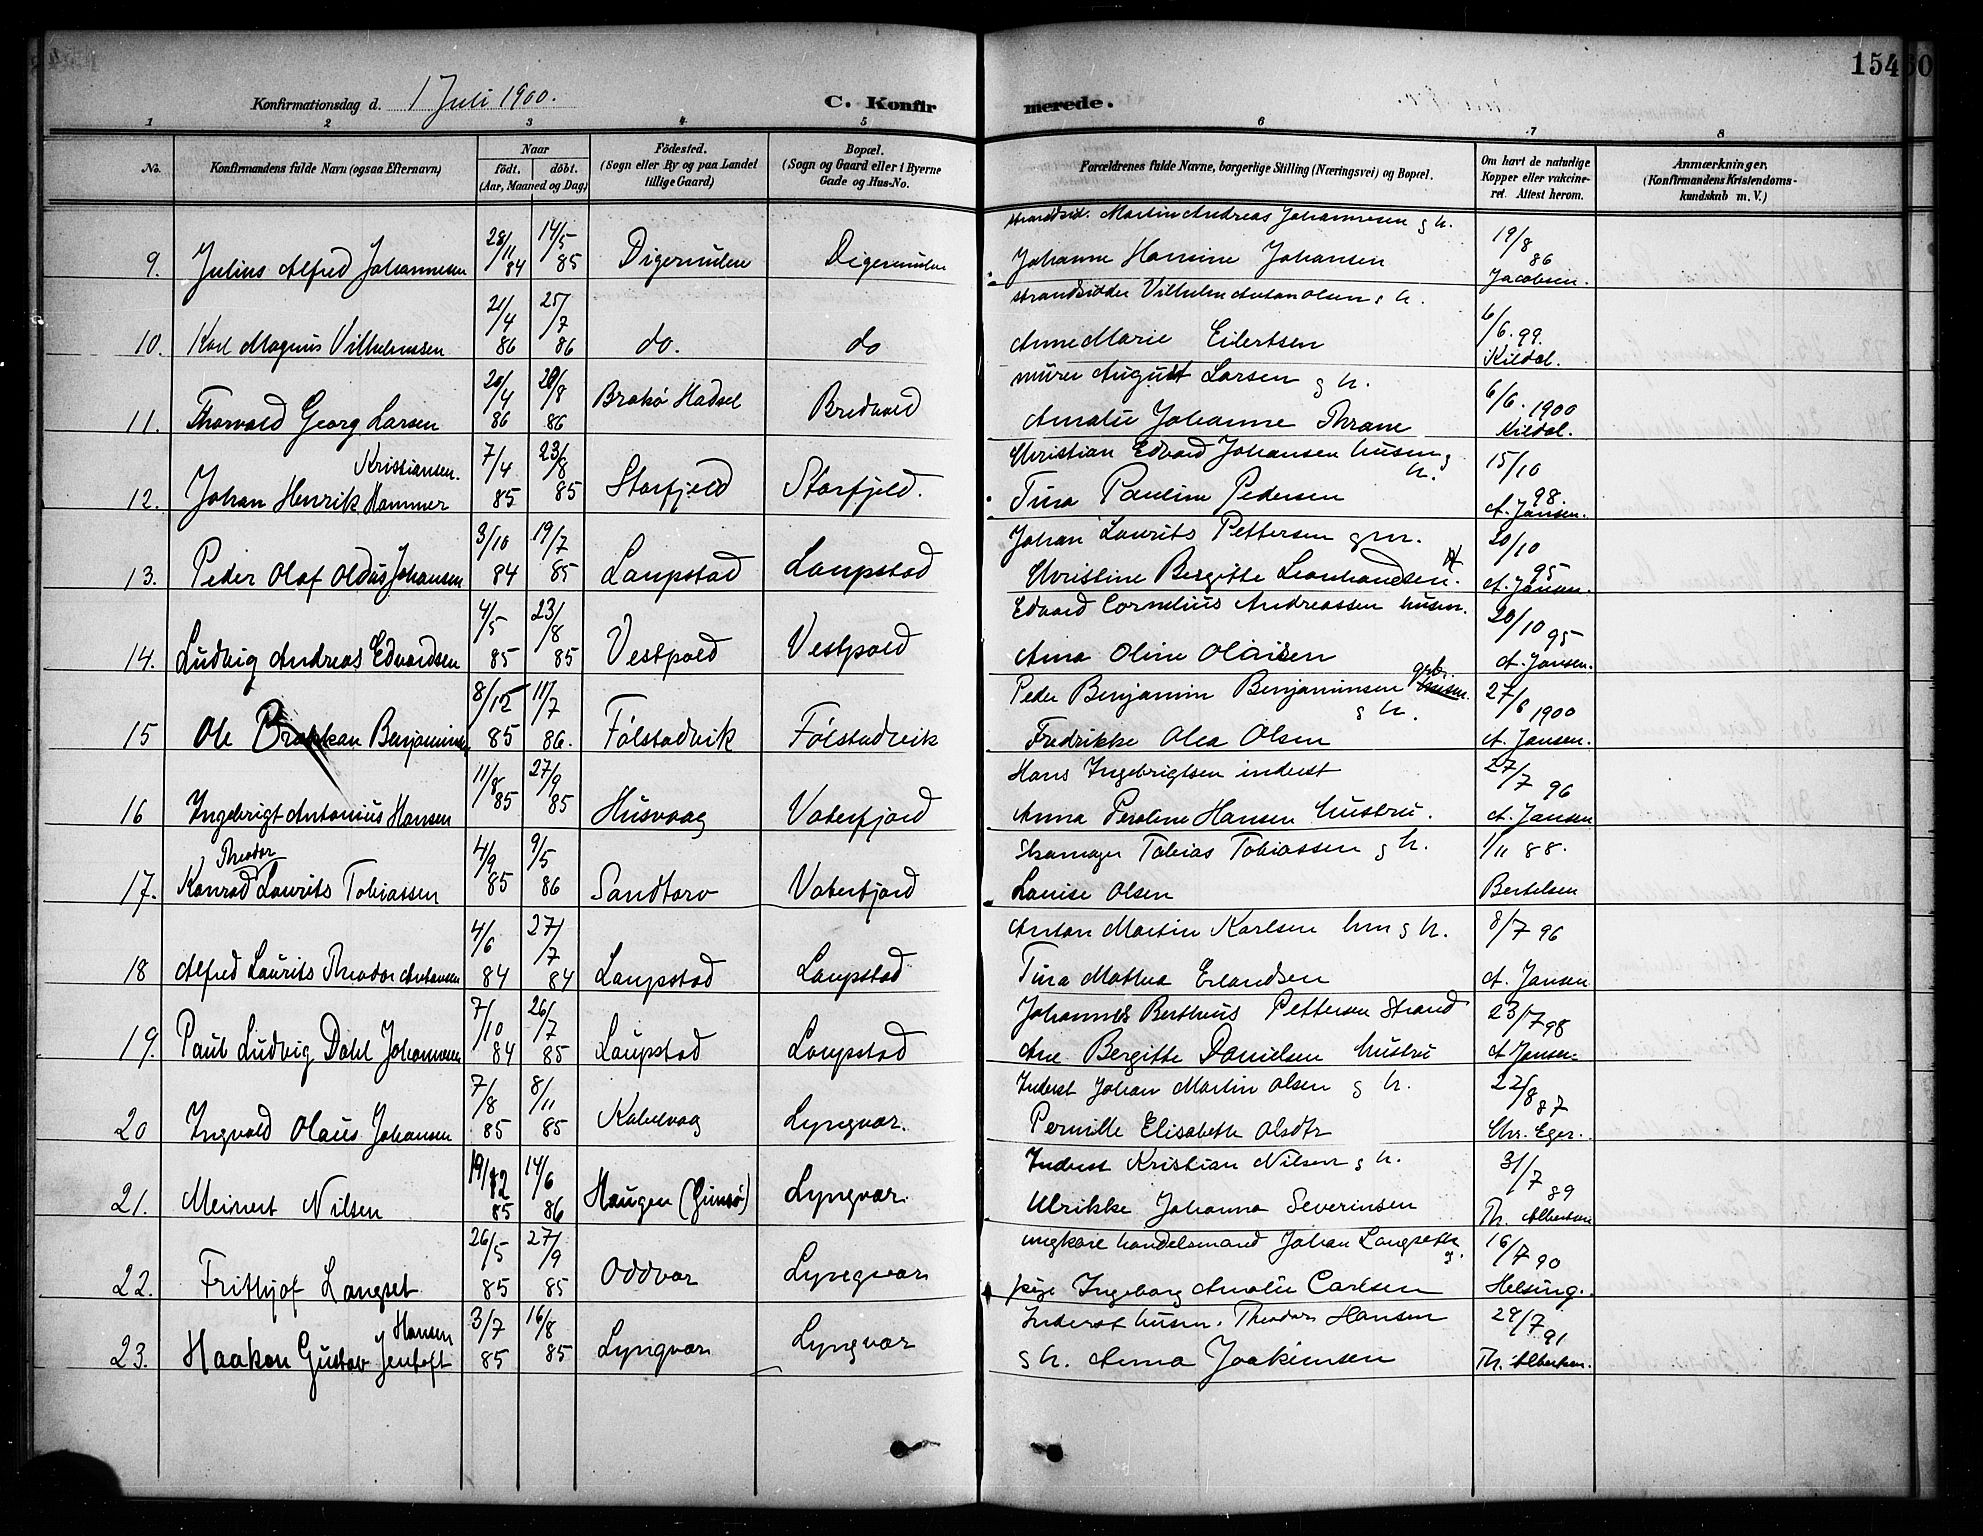 154
Konfirmationsdag d. 1 Juli 1900.
C. Konfirmerede.
1 2 3 4 5 6 7 8
No.
Konfirmandens fulde Navn (ogsaa Efternavn)
Naar
födt. döbt.
(Aar, Maaned og Dag)
Födested.
(Sogn eller By og paa Landet
tillige Gaard)
Bopæl.
(Sogn og Gaard eller i Byerne
Gade og Hus-No.
Forældrenes fulde Navne, borgerlige Stilling (Næringsvei) og Bopæl.
Om havt de naturlige
Kopper eller vakcine-
ret. Attest herom.
Anmærkninger,
(Konfirmandens Kristendoms-
kundskab m. V.)
strandsid. Martin Andreas Johannesen g h.
9. Julius Alfred Johannesen 28/11 84 14/5 85 Digermulen Digermulen Johanne Hansine Johansen 19/8 86 Jacobsen.
strandsidder Vilhelm Anton Olsen g h.
10. Karl Magnus Vilhelmsen 21/4 86 25/7 86 do. do Anne Marie Eilertsen 6/6. 99. Kildal.
murer August Larsen g h.
11. Thorvald Georg Larsen 20/4 86 29/8 86 Brokø Hadsel Bredvold Amalie Johanne Thrane 6/6. 1900 Kildal.
Christian Edvard Johansen husm g h.
12. Johan Henrik Hammer Kristiansen. 7/4 85 23/8 85 Storfjeld Storfjeld. Tina Pauline Pedersen 15/10 98. A. Jansen.
Johan Laurits Pettersen gm.
13. Peder Olaf Oldus Johansen 3/10 84 19/7 85 Laupstad Laupstad Christine Bergitte Leonhardsen. 20/10 95 A. Jansen.
Edvard Cornelius Andreassen husm.
14. Ludvig Andreas Edvardsen 4/5 85 23/8 85 Vestpold Vestpold Ana Oline Olaisen 20/10 95 A. Jansen.
Peder Benjamin Benjaminsen g h.
15 Ole Benjaminsen 8/12 85 11/7 86. Følstadvik Følstadvik Fredrikke Olea Olsen 27/6 1900 A. Jansen.
Hans Ingebrigtsen inderst
16 Ingebrigt Antonius Hansen 11/8 85 27/9 85 Husvaag Vaterfjord Anna Peroline Hansen hustru. 27/7 96 A. Jansen
Skomager Tobias Tobiassen g h.
17. Konrad Theodor Laurits Tobiassen 4/9 85 9/5 86 Sandtorv Vaterfjord Louise Olsen 1/11 88. Bertelsen
Anton Martin Karlsen hm g h.
18 Alfred Laurits Theodor Antonsen 4/6 84 27/7 84 Laupstad Laupstad Tina Mathea Erlandsen 8/7 96 A. Jansen
Johannes Bertheus Pettersen Strand
19. Paul Ludvig Dahl Johannesen 7/10 84 26/7 85 Laupstad Laupstad Ane Bergitte Danielsen hustru 23/7 98 A Jansen
Inderst Johan Martin Olsen g h.
20 Ingvald Olaus Johansen 7/8 85 8/11 85 Kabelvaag Lyngvær. Pernille Elisabeth Olsdtr 22/8 87 Chr. Eger.
Inderst Kristian Nilsen g h.
21. Meinert Nilsen 19/12 85 14/6 86 Haugen (Gimsø) Lyngvær. Ulrikke Johanna Severinsen 31/7 89 Th. Albertsen
ungkare handelsmand Johan Langseth g.
22. Frithjof Langset 26/5 85 27/9 85 Oddvær Lyngvær pige Ingeborg Amalie Carlsen 16/7 90 Helsing.
Inderst husm. Theodor Hansen
23. Haakon Gustav Jentoft Hansen 3/7 85 16/8 85 Lyngvær Lyngvær g h. Anna Joakimsen 29/7 91 Th. Albertsen.